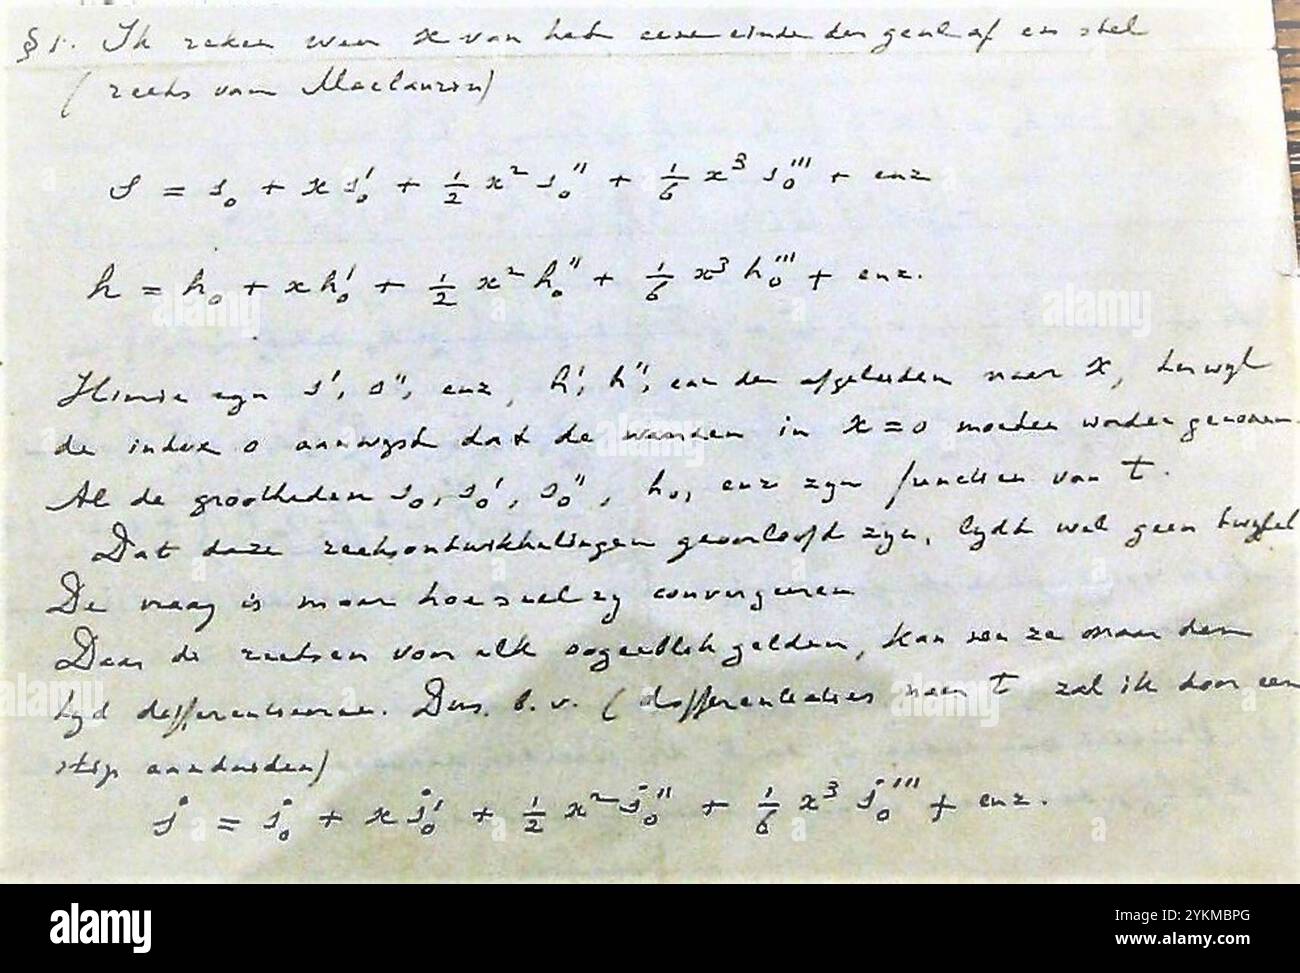 § 1. Ik reken weer x van het eene einde der geul af en stel
(reeks van Maclaurin)
s = s₀ + x s₀' + 1/2 x² s₀'' + 1/6 x³ s₀''' + enz
h = h₀ + x h₀' + 1/2 x² h₀'' + 1/6 x³ h₀''' + enz.
Hierin zyn s', s'', enz, h', h'', enz de afgeleiden naar x, terwyl
de index 0 aanwyst dat de waarden in x = 0 moeten worden genomen.
Al de grootheden s₀, s₀', s₀'', h₀, enz zyn functies van t.
Dat deze reeksontwikkelingen geoorloofd zyn, lydt wel geen twyfel
De vraag is maar hoe snel zy convergeeren
Daar de reeksen voor elk oogenblik gelden, kan men ze naar den
tyd differentieeren. Dus b.v. (differentiaties naar t zal ik door een
stip aanduiden)
ṡ = ṡ₀ + x ṡ₀' + 1/2 x² ṡ₀'' + 1/6 x³ ṡ₀''' + enz.
alamy
Image ID: 2YKMBPG
www.alamy.com